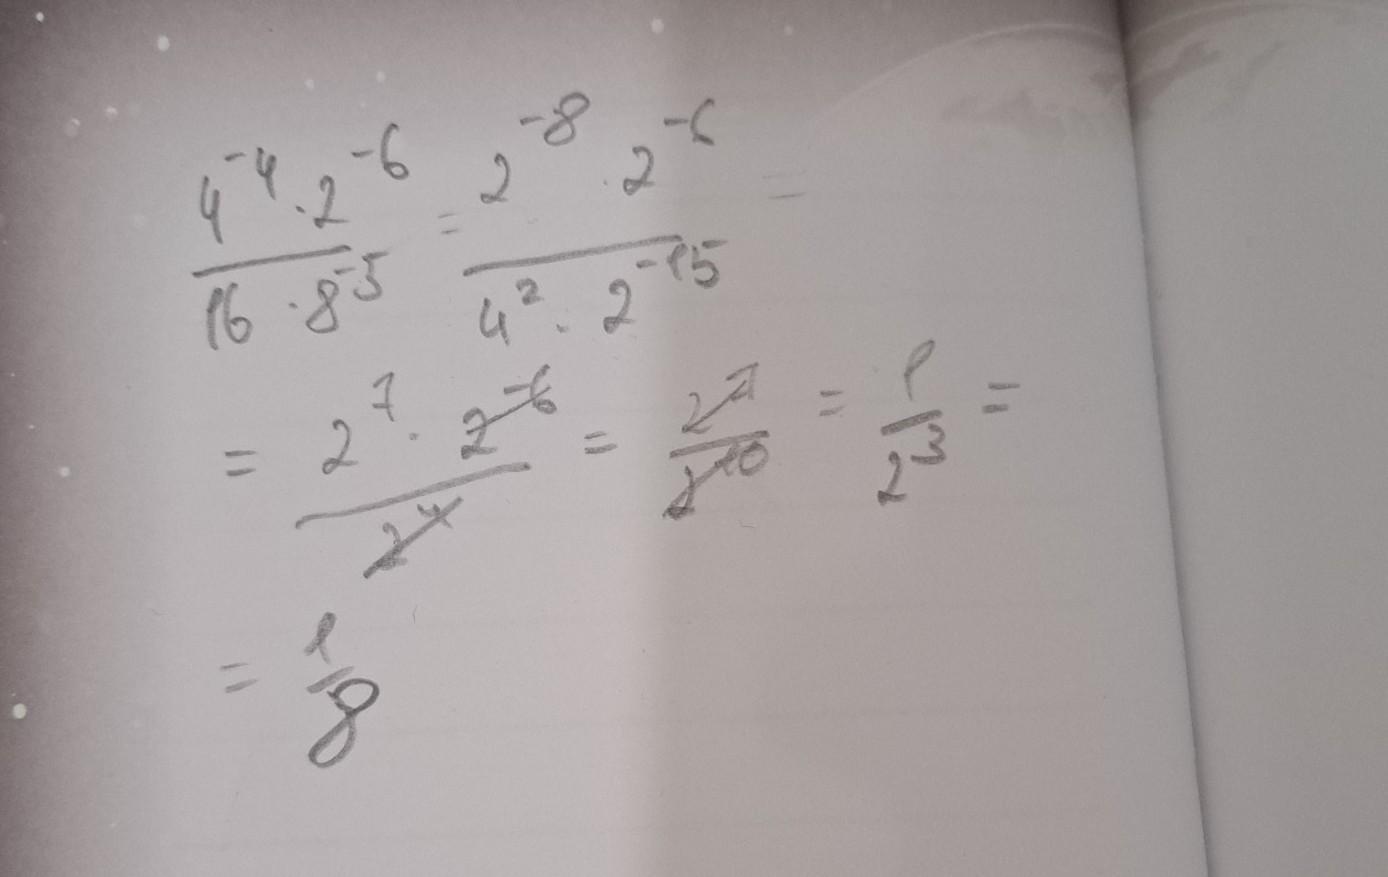 4^-4 · 2^-6 / 16 · 8^-5 = 2^-8 · 2^-6 / 4^2 · 2^-15 =
= 2^7 · 2^-6 / 2^4 = 2^7 / 2^10 = 1 / 2^3 =
= 1 / 8